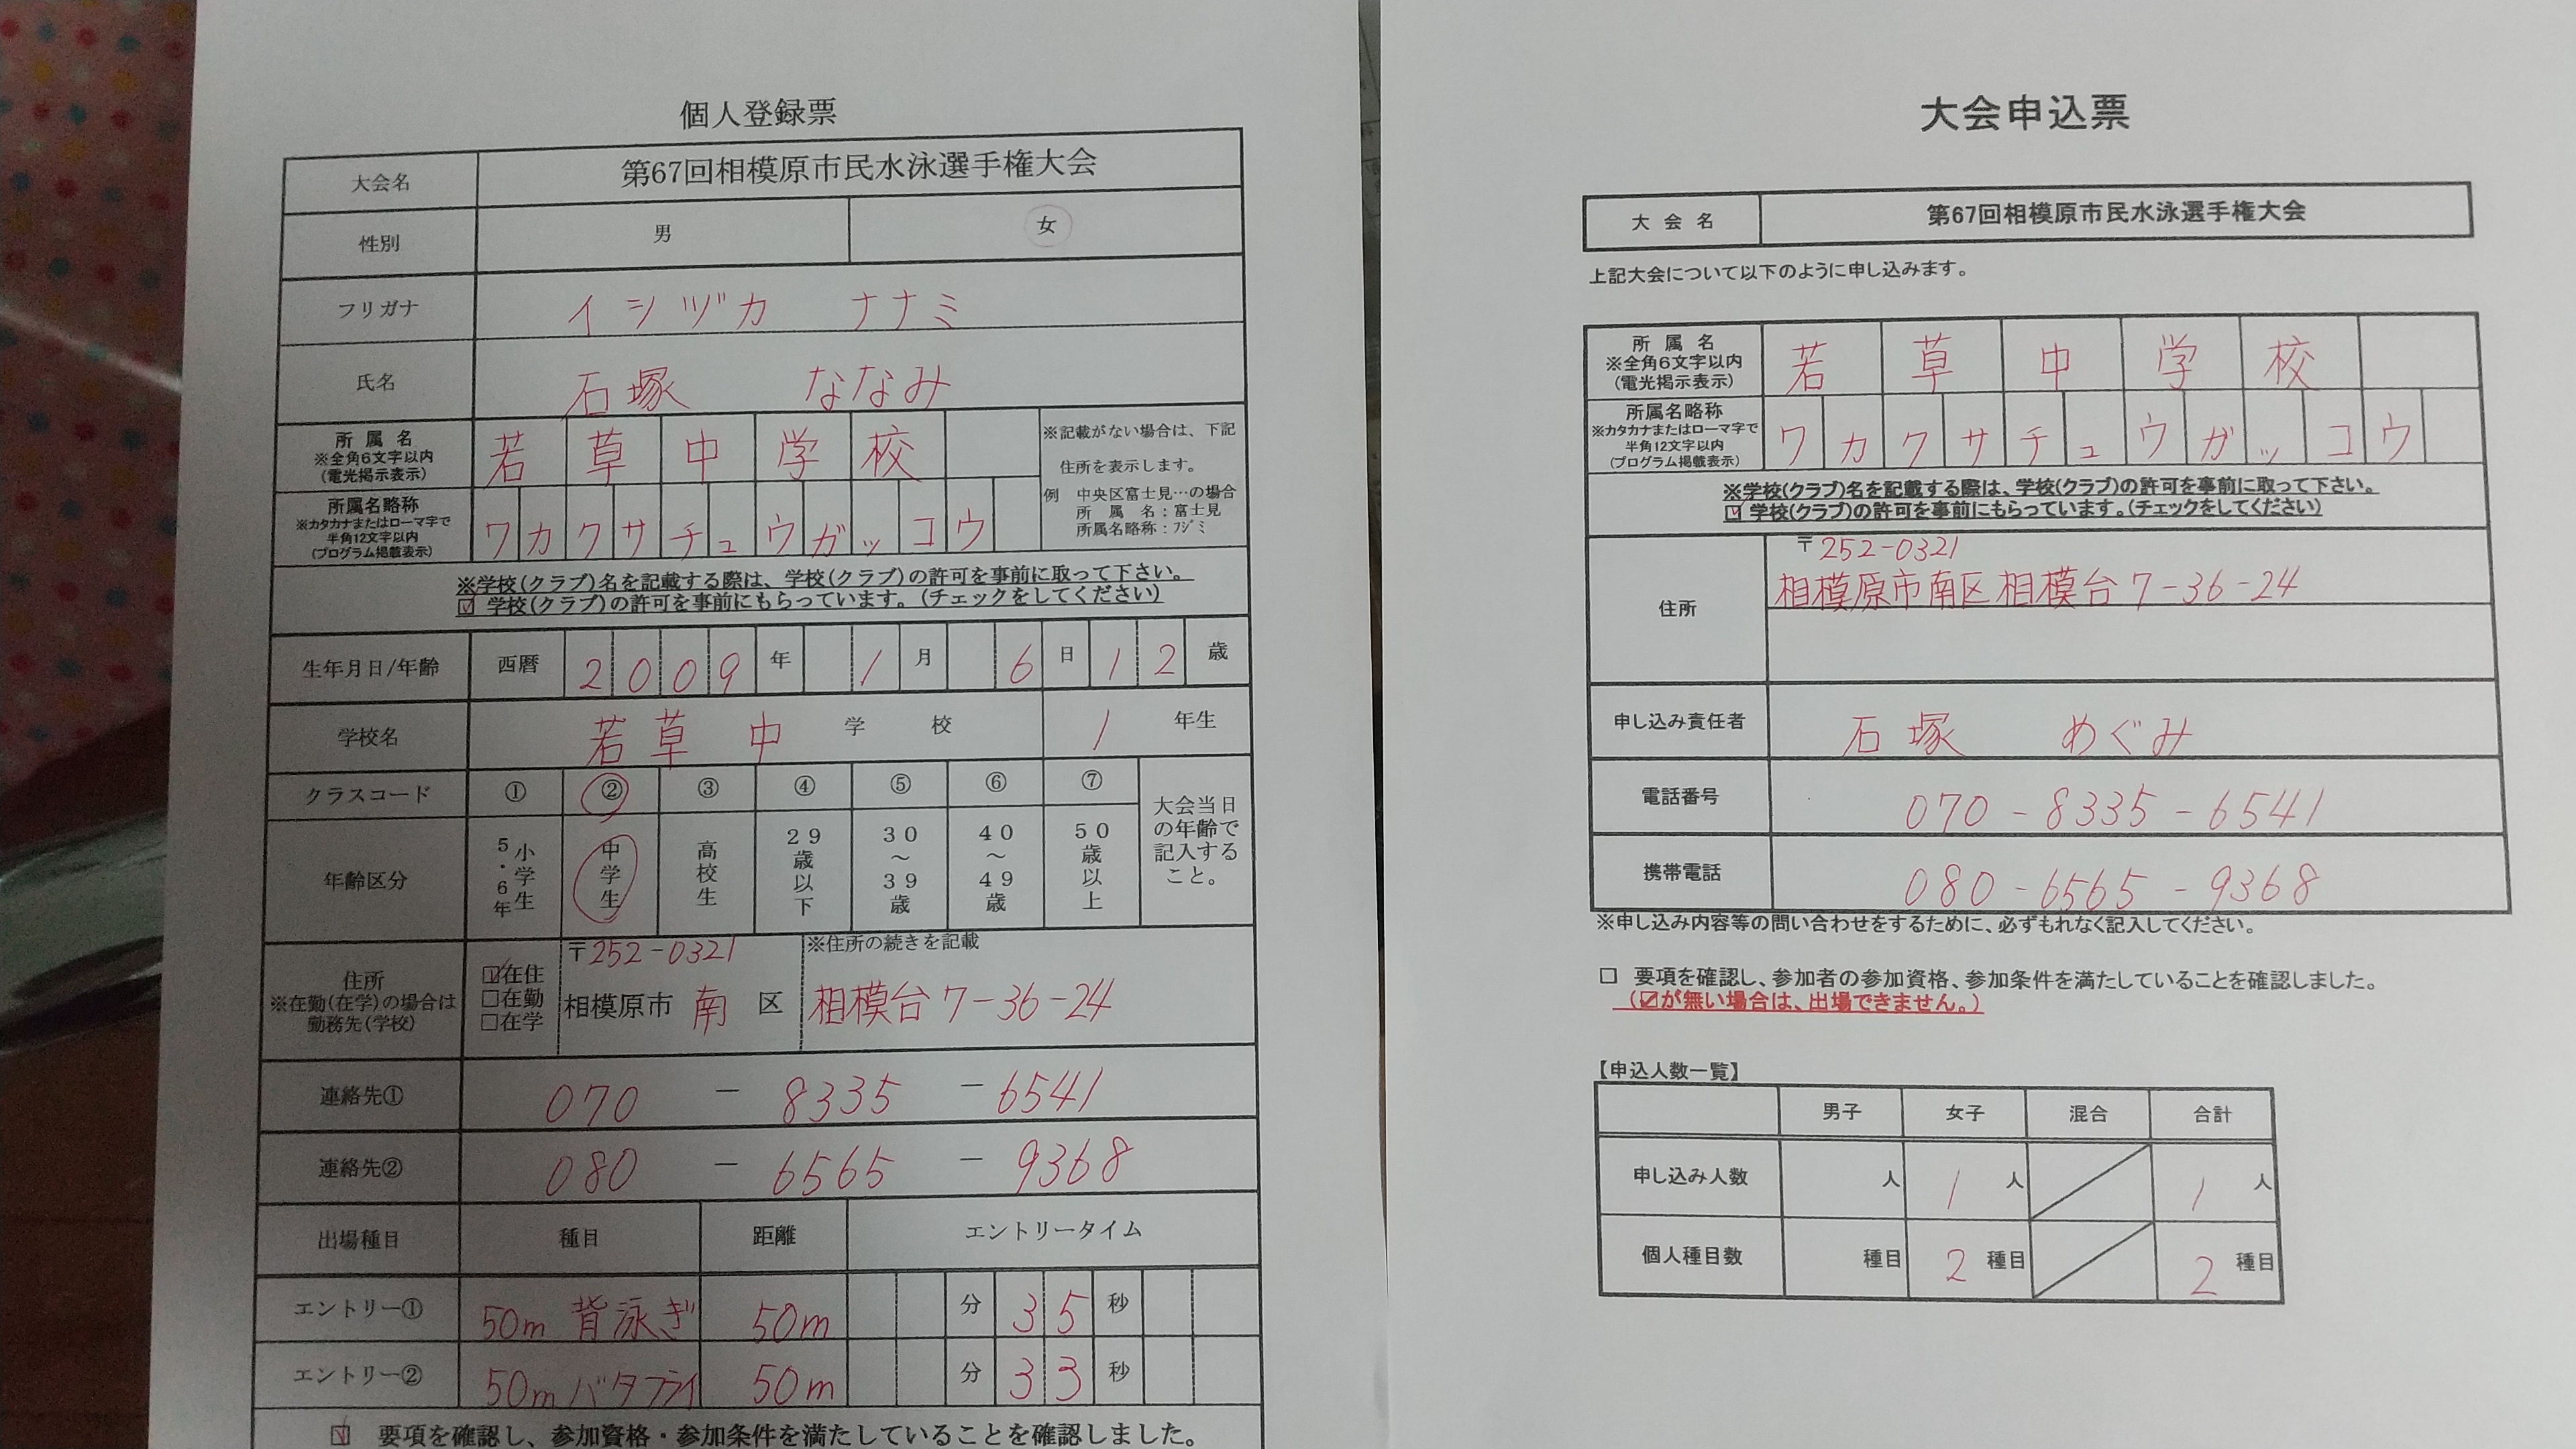 個人登録票
大会名 第67回相模原市民水泳選手権大会
性別 男 女
フリガナ イシヅカ ナナミ
氏名 石塚 ななみ
所属名 ※全角6文字以内 (電光掲示表示) 若草中学校
※記載がない場合は、下記住所を表示します。
例 中央区富士見…の場合
所属名:富士見
所属名略称:フジミ
所属名略称 ※カタカナまたはローマ字で半角12文字以内 (プログラム掲載表示) ワカクサチュウガッコウ
※学校(クラブ)名を記載する際は、学校(クラブ)の許可を事前に取って下さい。
☑ 学校(クラブ)の許可を事前にもらっています。(チェックをしてください)
生年月日/年齢 西暦 2009年 1月 6日 12歳
学校名 若草中 学校 1 年生
クラスコード ① ② ③ ④ ⑤ ⑥ ⑦ 大会当日の年齢で記入すること。
年齢区分 小学生5・6年 中学生 高校生 29歳以下 30~39歳 40~49歳 50歳以上
住所 ※在勤(在学)の場合は勤務先(学校)
☑在住 □在勤 □在学
〒252-0321
※住所の続きを記載
相模原市 南 区 相模台7-36-24
連絡先① 070 - 8335 - 6541
連絡先② 080 - 6565 - 9368
出場種目 種目 距離 エントリータイム
エントリー① 50m 背泳ぎ 50m 分 35 秒
エントリー② 50m バタフライ 50m 分 33 秒
☑ 要項を確認し、参加資格・参加条件を満たしていることを確認しました。
大会申込票
大会名 第67回相模原市民水泳選手権大会
上記大会について以下のように申し込みます。
所属名 ※全角6文字以内 (電光掲示表示) 若草中学校
所属名略称 ※カタカナまたはローマ字で半角12文字以内 (プログラム掲載表示) ワカクサチュウガッコウ
※学校(クラブ)名を記載する際は、学校(クラブ)の許可を事前に取って下さい。
☑ 学校(クラブ)の許可を事前にもらっています。(チェックをしてください)
住所 〒252-0321
相模原市南区相模台7-36-24
申し込み責任者 石塚 めぐみ
電話番号 070-8335-6541
携帯電話 080-6565-9368
※申し込み内容等の問い合わせをするために、必ずもれなく記入してください。
□ 要項を確認し、参加者の参加資格、参加条件を満たしていることを確認しました。
(☑が無い場合は、出場できません。)
【申込人数一覧】
男子 女子 混合 合計
申し込み人数 人 1 人 1 人
個人種目数 種目 2 種目 2 種目